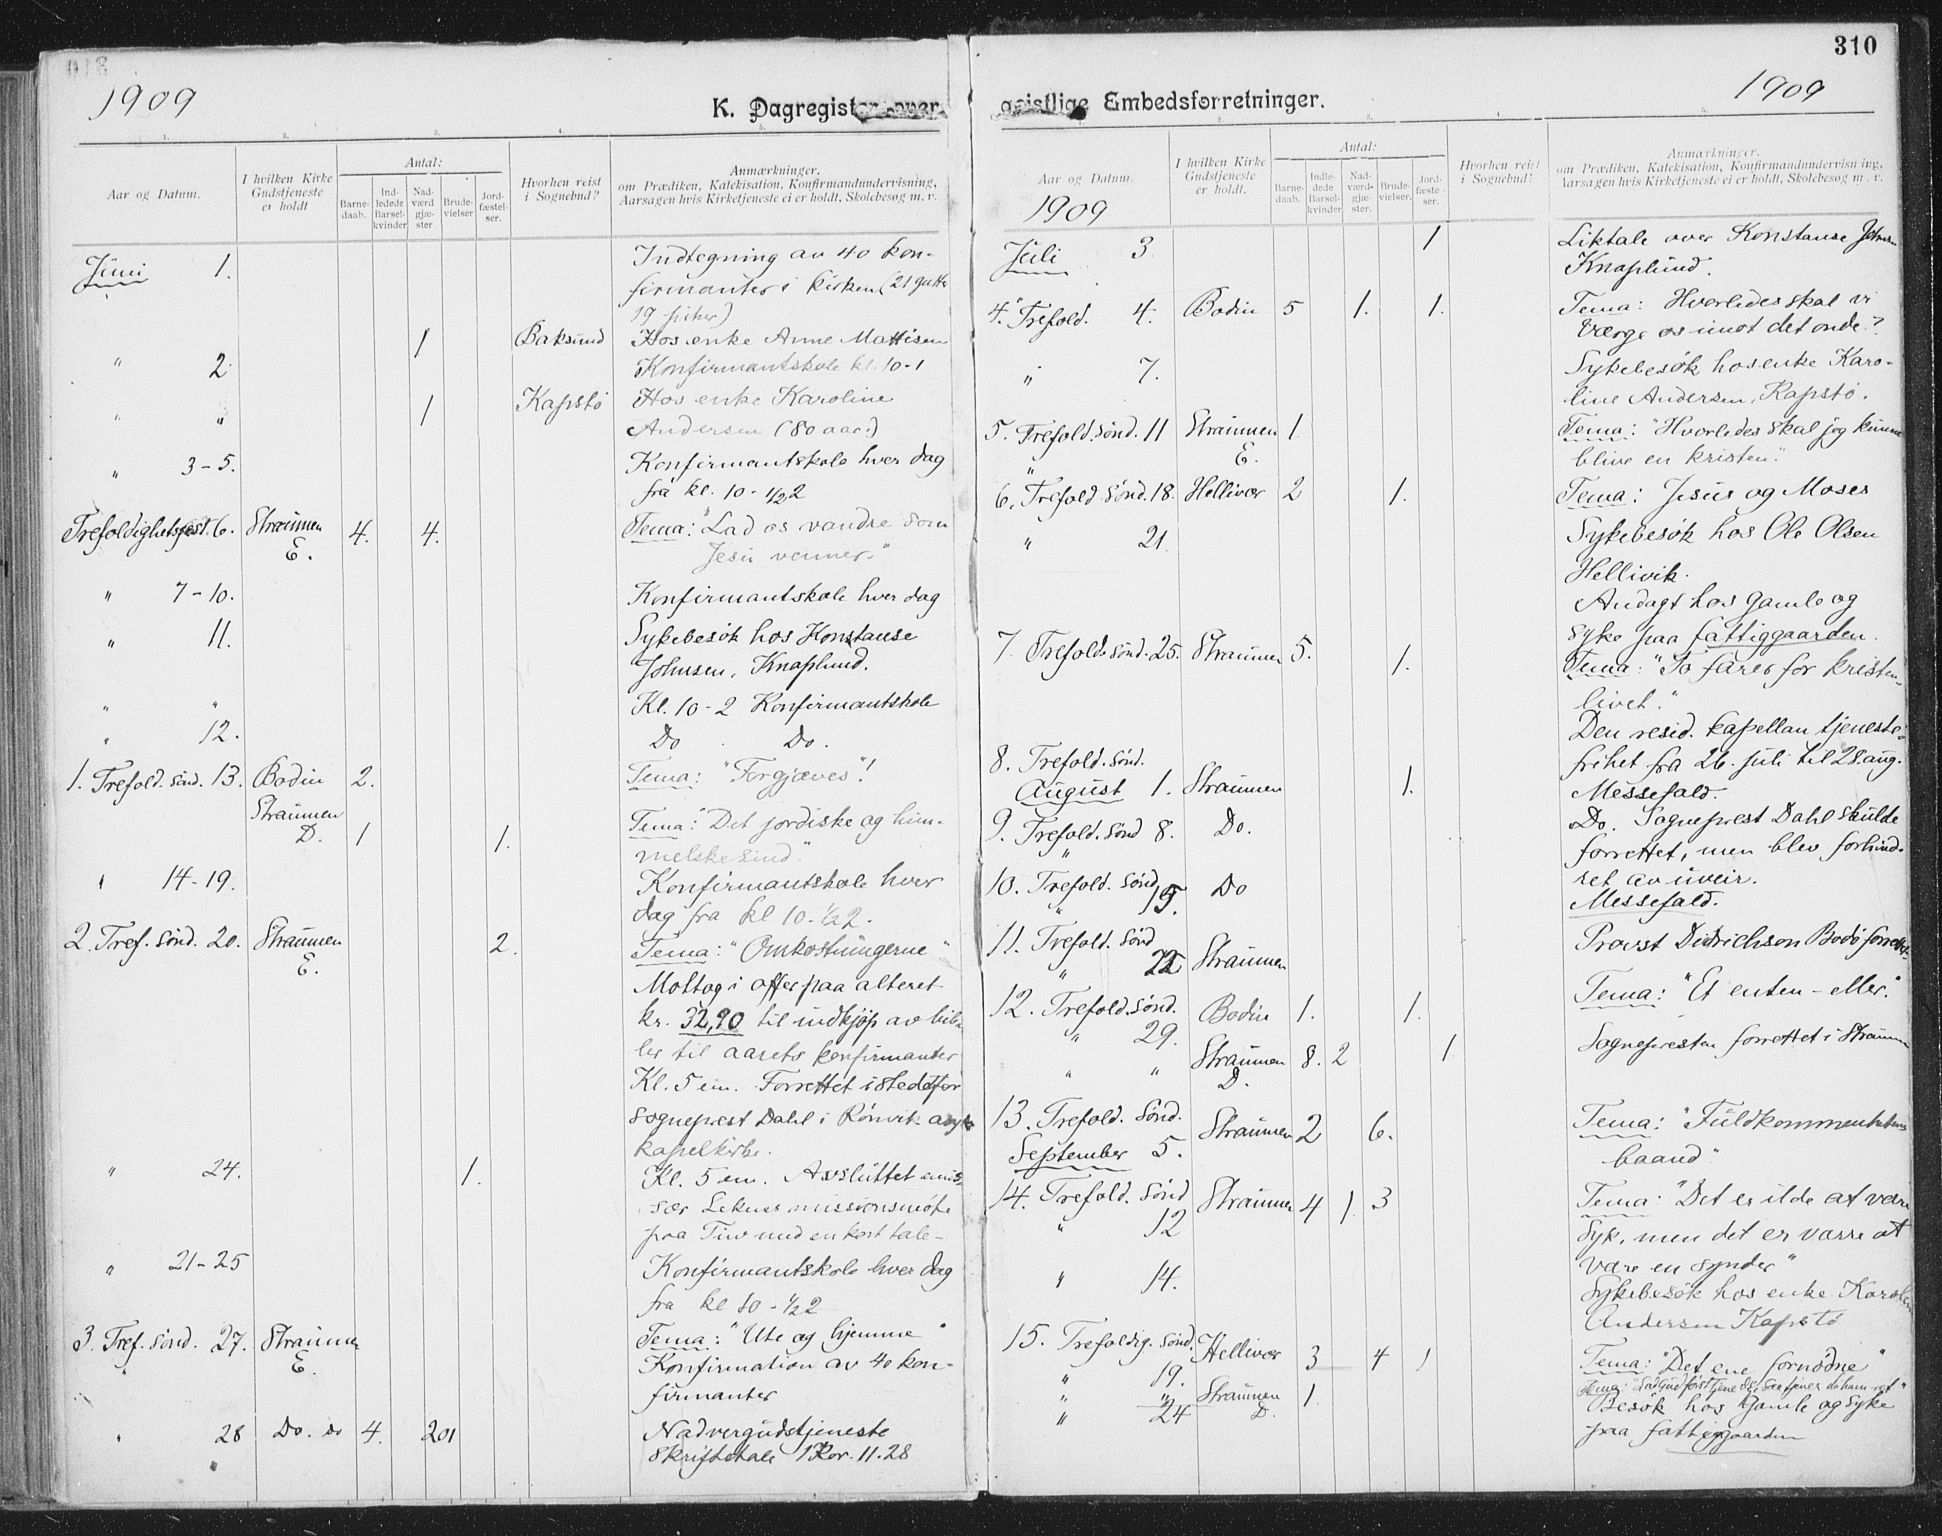 310
1909
K. Dagregister over
1. 2. 3. 4. 5.
Aar og Datum.
I hvilken Kirke Gudstjeneste er holdt
Antal:
Barnedaab.
Indledede Barselkvinder
Nadværdgjæster
Brudevielser
Jordfæstelser.
Hvorhen reist i Sognebud?
Anmærkninger.
om Prædiken, Katekisation, Konfirmandundervisning,
Aarsagen hvis Kirketjeneste ei er holdt, Skolebesøg m. v.
Juni 1. Indtegning av 40 kon-
firmanter i kirken (21 gutter
19 piker)
" 2. 1 Baksund Hos enke Anne Mattisen
Konfirmantskole kl. 10-1
" " 1 Kapstø Hos enke Karoline
Andersen (80 aar.)
" 3-5. Konfirmantskole hver dag
fra kl. 10-½2
Trefoldighetsfest 6. Straumen 4. 4. Tema: "Lad os vandre som
E. Jesu venner."
" 7-10. Konfirmantskole hver dag
" 11. Sykebesök hos Konstanse
Johnsen, Knaplund.
" " Kl. 10-2 Konfirmantskole
" 12. Do Do.
1. Trefold. sønd. 13. Bodin 2. Tema: "Forgjæves"!
Straumen Tema: "Det jordiske og him-
D. 1 1. melske sind".
" 14-19. Konfirmantskole hver
dag fra kl 10-½2.
2. Tref. sønd. 20. Straumen 2. Tema: "Omkostningerne"
E. Mottog i offer paa alteret
kr. 32,90 til indkjøp av bib-
ler til aarets konfirmanter
Kl. 5 em. Forrettet istedetfor
sogneprest Dahl i Rönvik asyls
kapelkirke.
" 24. 1. Kl. 5 em. Avsluttet emis-
sær missionsmöte
paa med en kort tale-
" 21-25 Konfirmantskole hver dag
fra kl 10-½2
3. Tref. sønd. 27. Straumen Tema: "Ute og hjemme"
" E. Konfirmation av 40 kon-
firmanter
" 28 Do. do 4. 201 Nadvergudstjeneste
Skriftetale 1 Kor. 11.28
310
1909
geistlige Embedsforretninger.
Aar og Datum.
1909
I hvilken Kirke Gudstjeneste er holdt.
Antal:
Barnedaab.
Indledede Barselkvinder
Nadværdgjæster.
Brudevielser.
Jordfæstelser.
Hvorhen reist i Sognebud?
Anmærkninger.
om Prædiken, Katekisation, Konfirmandundervisning,
Aarsagen hvis Kirketjeneste ei er holdt, Skolebesøg m. v.
Juli 3. 1 Liktale over Konstanse Johnsen
Knaplund.
4. Trefold. 4. Bodin 5 1. 1. Tema: Hvorledes skal vi
værge os imot det onde?
" 7. Sykebesök hos enke Karo-
line Andersen, Kapstø.
5. Trefold. sønd. 11 Straumen 1. Tema: "Hvorledes skal jeg kunne
E. blive en kristen."
6. Trefold sønd. 18. Hellivær 2 1. Tema: Jesus og Moses
" 21. Sykebesök hos Ole Olsen
Hellivik.
Andagt hos gamle og
syke paa fattiggaarden.
7. Trefold. sønd. 25. Straumen 5. 1. Tema: "To farer for kristen-
livet."
Den resid. kapellan tjeneste-
frihet fra 26. juli til 28. aug.
8. Trefold. sønd.
August 1. Straumen 1. Messefald.
9. Trefold. sønd 8. Do. Do. Sogneprest Dahl skulde
forrettet, men blev forhind-
ret av uveir.
10. Trefold. sønd 15. Do Messefald.
11. Trefold. sønd
" 22 Straumen Provst Didrichson Bodö forrettet
12. Trefold. sønd. Bodin 1. 1. Tema: "Et enten-eller."
" 29.
" " Straumen 8. 2 1 Sognepresten forrettet i Straumen
D.
13. Trefold. sønd. Straumen 2 6. Tema: "Fuldkommenhetens
September 5. baand."
14. Trefold. sønd Straumen 4 1. 3 Tema: "Det er ilde at være
" 12 syk, men det er værre at
være en synder"
" 14. Sykebesök hos enke Karoline
Andersen Kapstø
15. Trefoldig. sønd. Hellivær 3 4 1 Tema: "Det ene fornødne"
" 19.
" " Straumen 1.
" 24 D. Besök hos gamle og syke
paa fattiggaarden